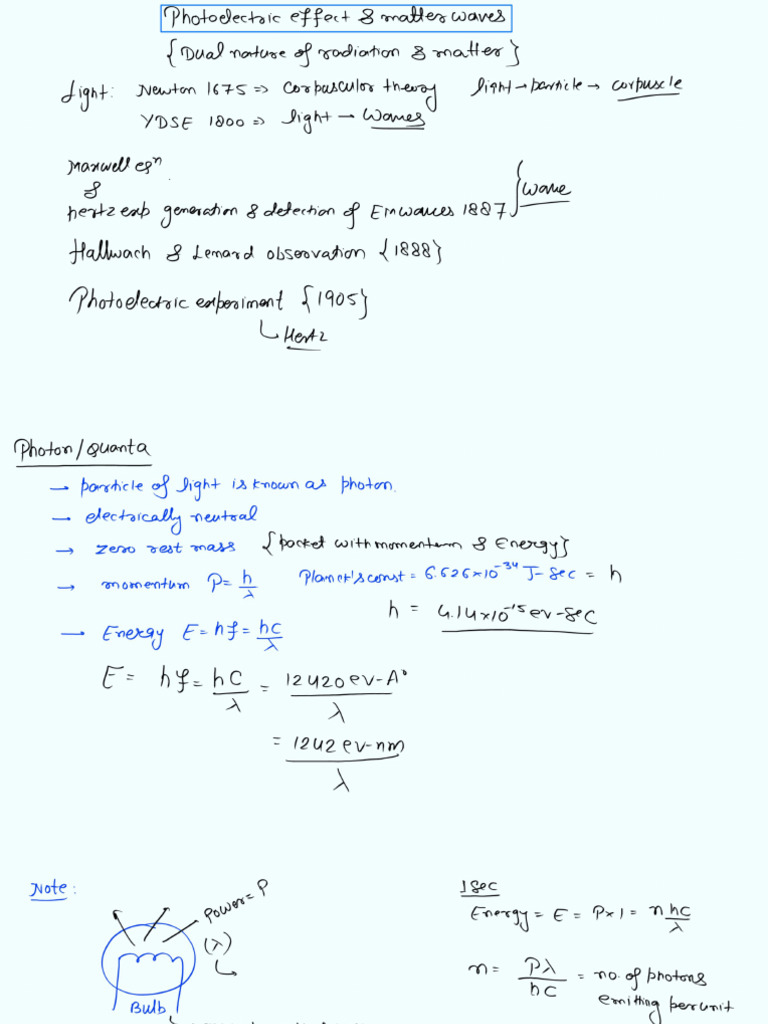 Photoelectric effect & matter waves
{Dual nature of radiation & matter}
Light: Newton 1675 => Corpuscular theory light → particle → corpuscle
YDSE 1800 => light → waves
Maxwell eqⁿ
&
hertz exp generation & detection of EM waves 1887 } wave
Hallwach & Lenard observation {1888}
Photoelectric experiment {1905}
↳ Hertz
Photon/Quanta
→ particle of light is known as photon.
→ electrically neutral
→ zero rest mass {packet with momentum & Energy}
→ momentum P = h/λ Planck's const = 6.626×10⁻³⁴ J-sec = h
h = 4.14×10⁻¹⁵ ev-sec
→ Energy E = hf = hc/λ
E = hf = hc/λ = 12420 ev-A°/λ
= 1242 ev-nm/λ
Note:
Power = P
(λ)
Bulb
1 sec
Energy = E = P×1 = n hc/λ
n = Pλ/hc = no. of photons
emitting per unit